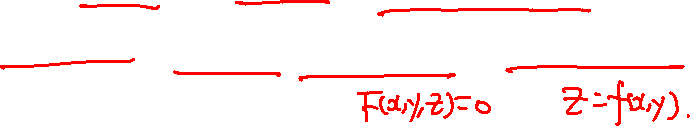 F(x,y,z)=0 z=f(x,y).